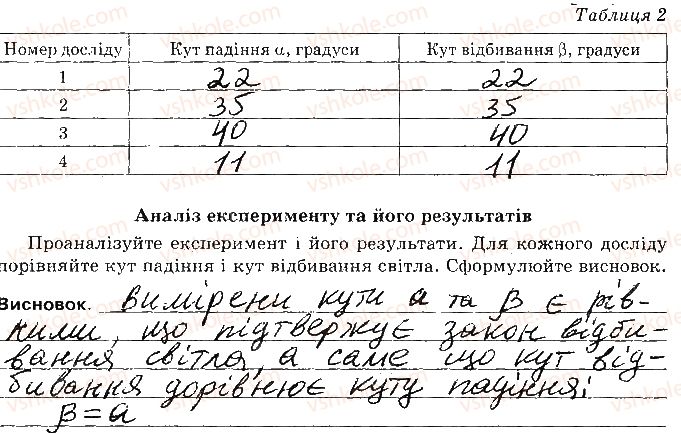 Таблиця 2
Номер досліду Кут падіння α, градуси Кут відбивання β, градуси
1 22 22
2 35 35
3 40 40
4 11 11
Аналіз експерименту та його результатів
Проаналізуйте експеримент і його результати. Для кожного досліду
порівняйте кут падіння і кут відбивання світла. Сформулюйте висновок.
Висновок. Вимірени кути α та β є рів-
ними, що підтвержує закон відби-
вання світла, а саме що кут від-
бивання дорівнює куту падіння:
β=α